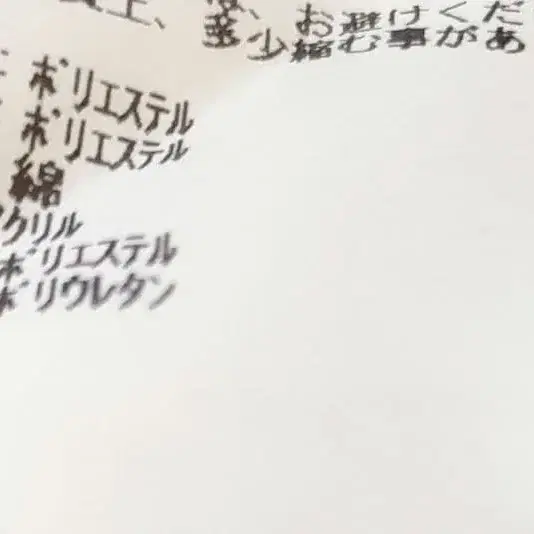 上、 は、お避けくだ
少縮む事があ
ポリエステル
ポリエステル
綿
クリル
ポリエステル
ポリウレタン